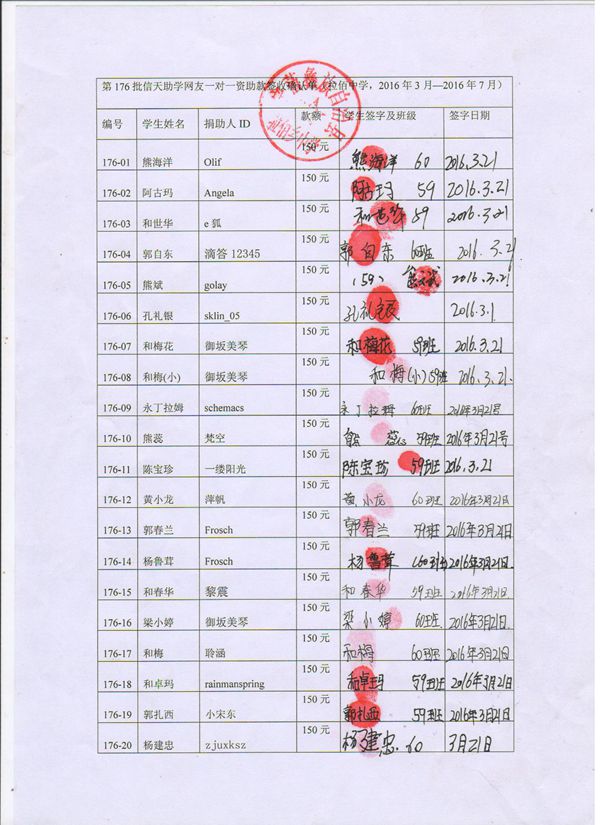 第176批信天助学网友一对一资助款签收确认单（拉伯中学，2016年3月—2016年7月）
编号 学生姓名 捐助人ID 款额 学生签字及班级 签字日期
176-01 熊海洋 Olif 150元 熊海洋 60 2016.3.21
176-02 阿古玛 Angela 150元 阿古玛 59 2016.3.21
176-03 和世华 e狐 150元 和世华 59 2016.3.21
176-04 郭自东 滴答12345 150元 郭自东 60班 2016.3.21
176-05 熊斌 golay 150元 （59） 熊斌 2016.3.21
176-06 孔礼银 sklin_05 150元 孔礼银 2016.3.1
176-07 和梅花 御坂美琴 150元 和梅花 59班 2016.3.21
176-08 和梅(小) 御坂美琴 150元 和梅(小) 59班 2016.3.21.
176-09 永丁拉姆 schemacs 150元 永丁拉姆 60班 2016年3月21号
176-10 熊蕊 梵空 150元 熊蕊 59班 2016年3月21号
176-11 陈宝珍 一缕阳光 150元 陈宝珍 59班 2016.3.21
176-12 黄小龙 萍帆 150元 黄小龙 60班 2016年3月21日
176-13 郭春兰 Frosch 150元 郭春兰 59班 2016年3月21日
176-14 杨鲁茸 Frosch 150元 杨鲁茸 60班 2016年3月21日.
176-15 和春华 黎震 150元 和春华 59班 2016年3月21日
176-16 梁小婷 御坂美琴 150元 梁小婷 60班 2016年3月21日.
176-17 和梅 聆涵 150元 和梅 60班 2016年3月21日
176-18 和卓玛 rainmanspring 150元 和卓玛 59班 2016年3月21日
176-19 郭扎西 小宋东 150元 郭扎西 59班 2016年3月21日
176-20 杨建忠 zjuxksz 150元 杨建忠. 60 3月21日